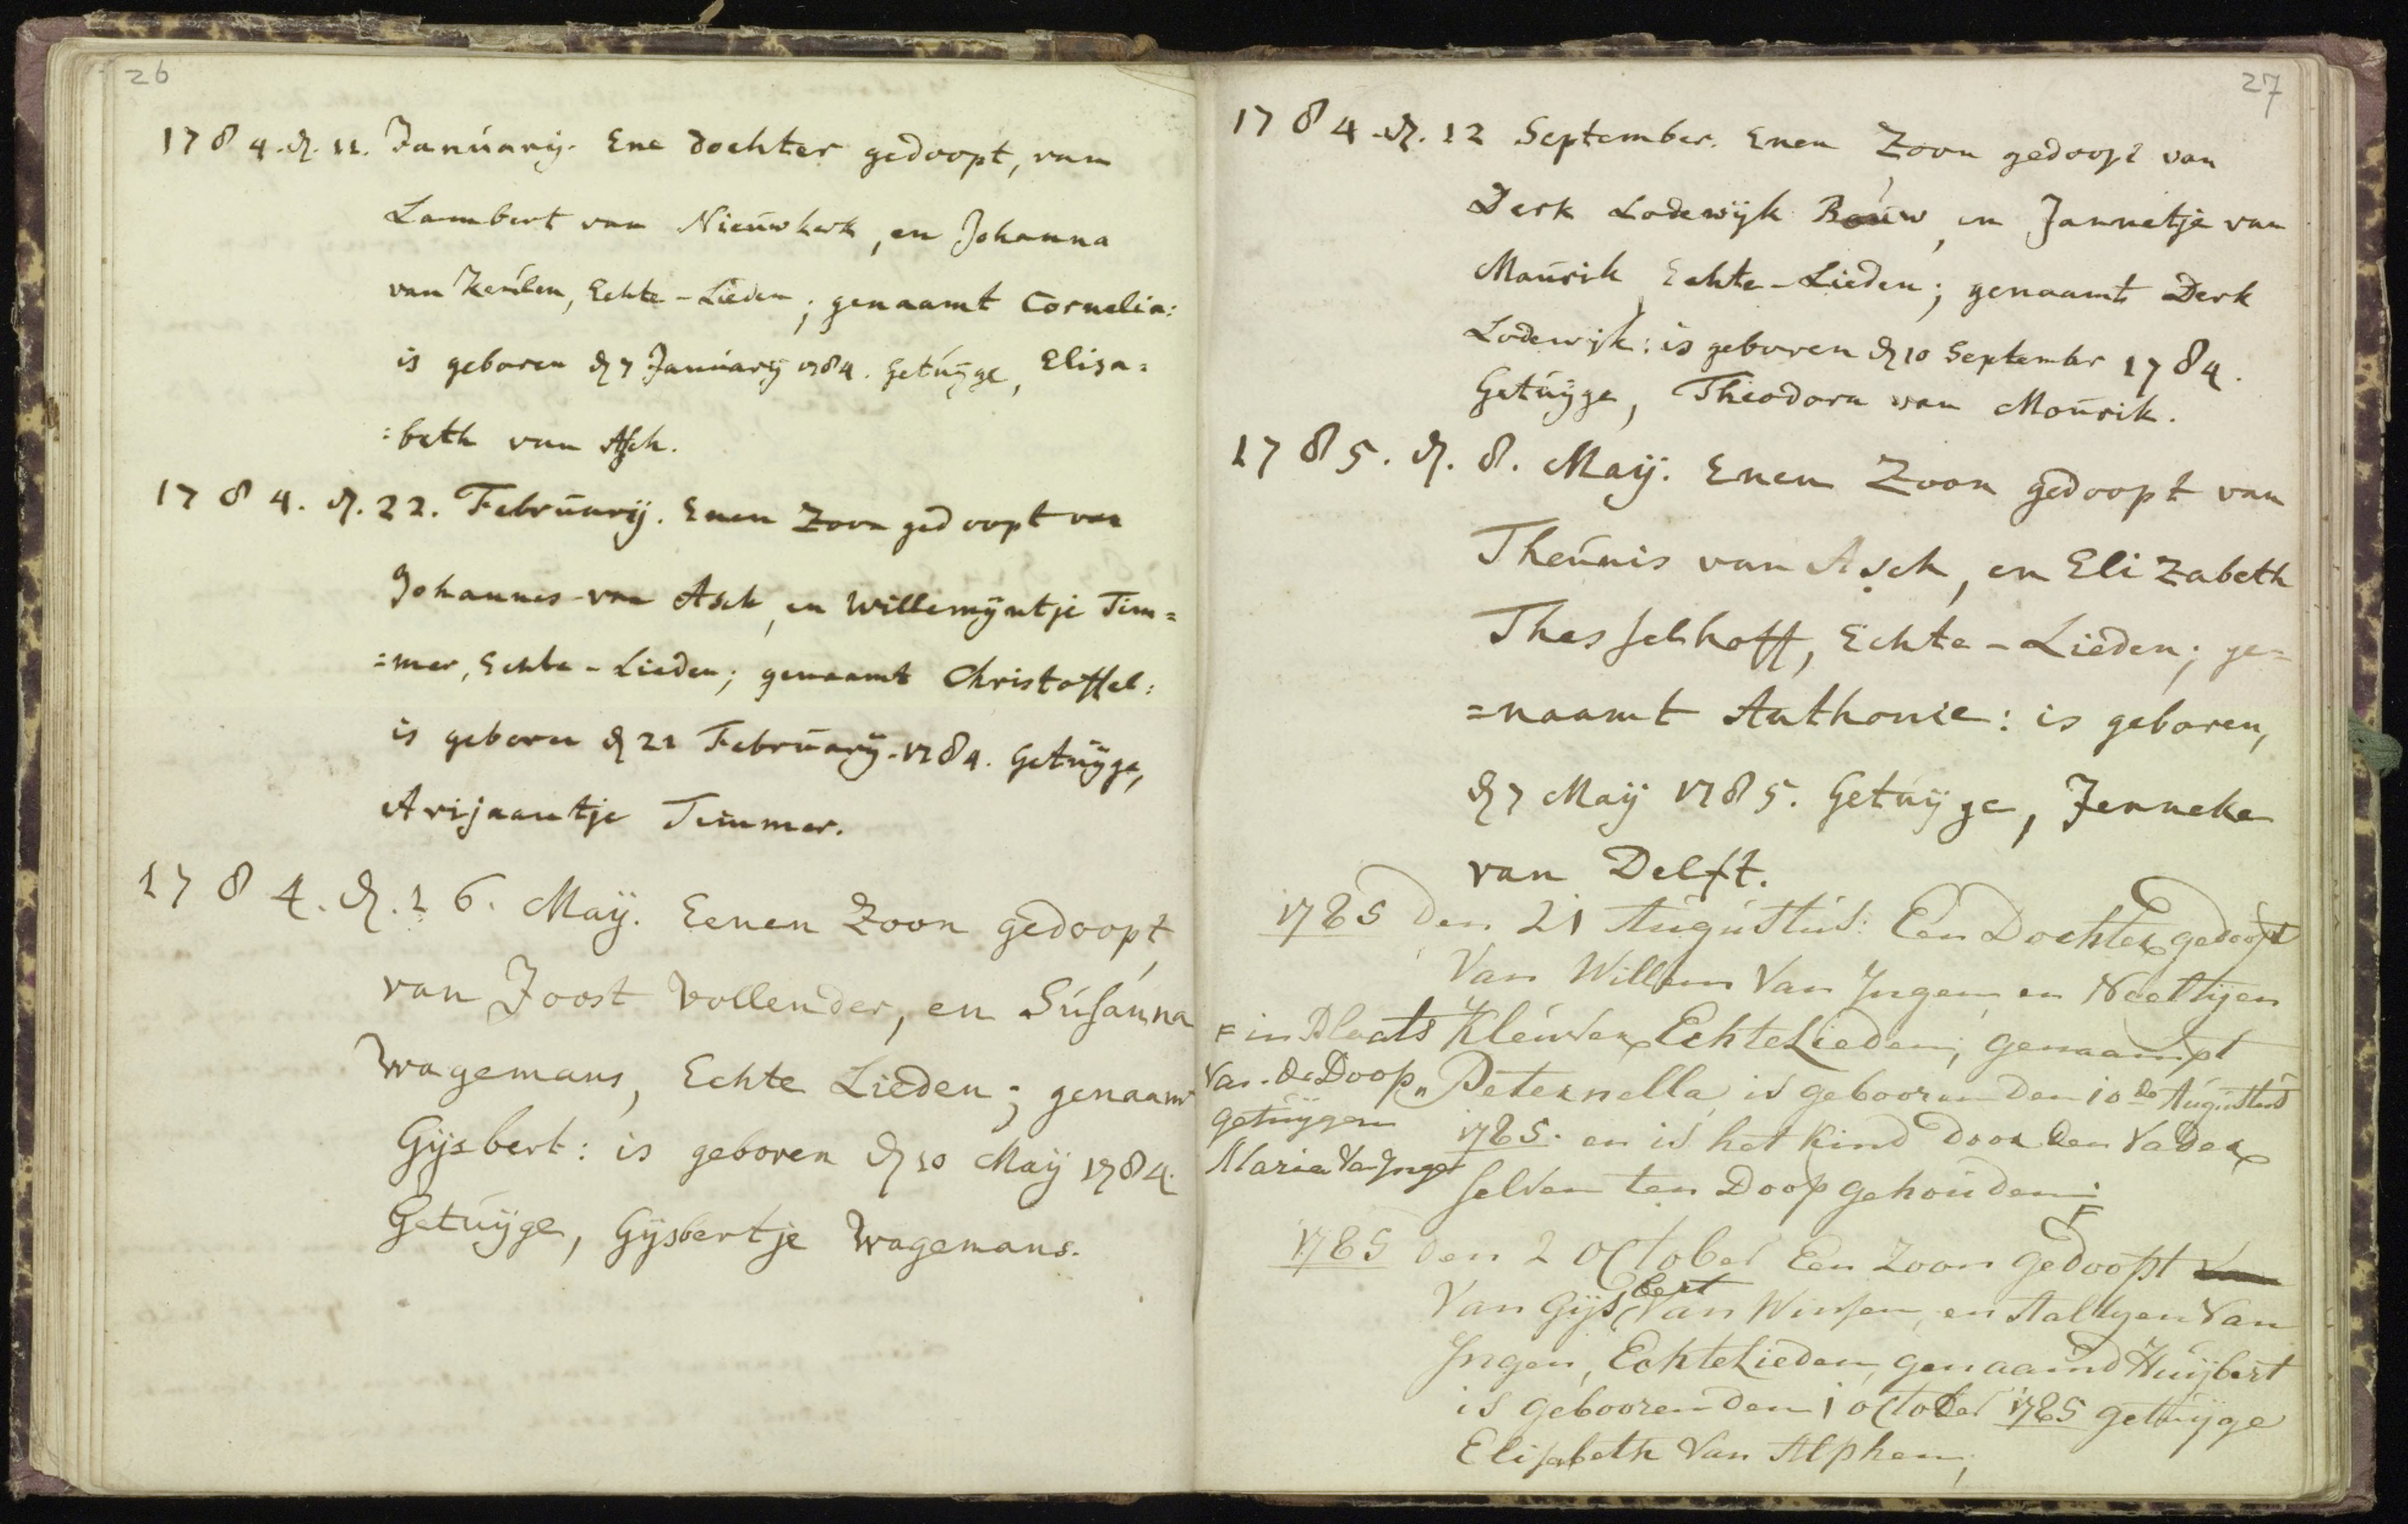 26
1784. d. 11. Januarij. Ene dochter gedoopt, van
Lambert van Nieuwkerk, en Johanna
van Keulen, Echte-Lieden; genaamt Cornelia:
is geboren d 7 Januarij 1784. Getuyge, Elisa=
=beth van Asch.
1784. d. 22. Februarij. Enen Zoon gedoopt van
Johannes van Asch, en Willemyntje Tim=
=mer, Echte-Lieden; genaamt Christoffel:
is geboren d 21 Februarij 1784. Getuyge,
Arijaantje Timmer.
1784. d. 16. Maij. Eenen Zoon gedoopt,
van Joost Vollender, en Susanna
Wagemans, Echte Lieden; genaamt
Gijsbert: is geboren d 10 Maij 1784.
Getuyge, Gysbertje Wagemans.
27
1784. d. 12 September. Enen Zoon gedoopt van
Derk Lodewijk Bouw, en Jannetje van
Maurik Echte-Lieden; genaamt Derk
Lodewijk: is geboren d 10 September 1784.
Getuyge, Theodora van Mourik.
1785. d. 8. Maij. Enen Zoon gedoopt van
Theunis van Asch, en Elizabeth
Thesselhoff, Echte-Lieden; ge=
=naamt Anthonie: is geboren,
d 7 Maij 1785. Getuyge, Jenneke
van Delft.
1785 den 21 Augustus: Een Dochter gedoopt
Van Willem Van Ingen, en Neeltijen
Kleuver, Echte Lieden, genaampt
Peternella, is gebooren den 10 de Augustus
1785. en is het kind door den Vader
selven ten Doop gehouden;
F in Plaats
Van de Doop
getuijgen
Maria Van Ingen
1785 den 2 October Een Zoon gedoopt Van
Van Gijsbert Van Winsen, en Aaltyen Van
Ingen, Echte Lieden, genaamd Huijbert
is gebooren den 1 October 1785 getuyge
Elisabeth Van Alphen,